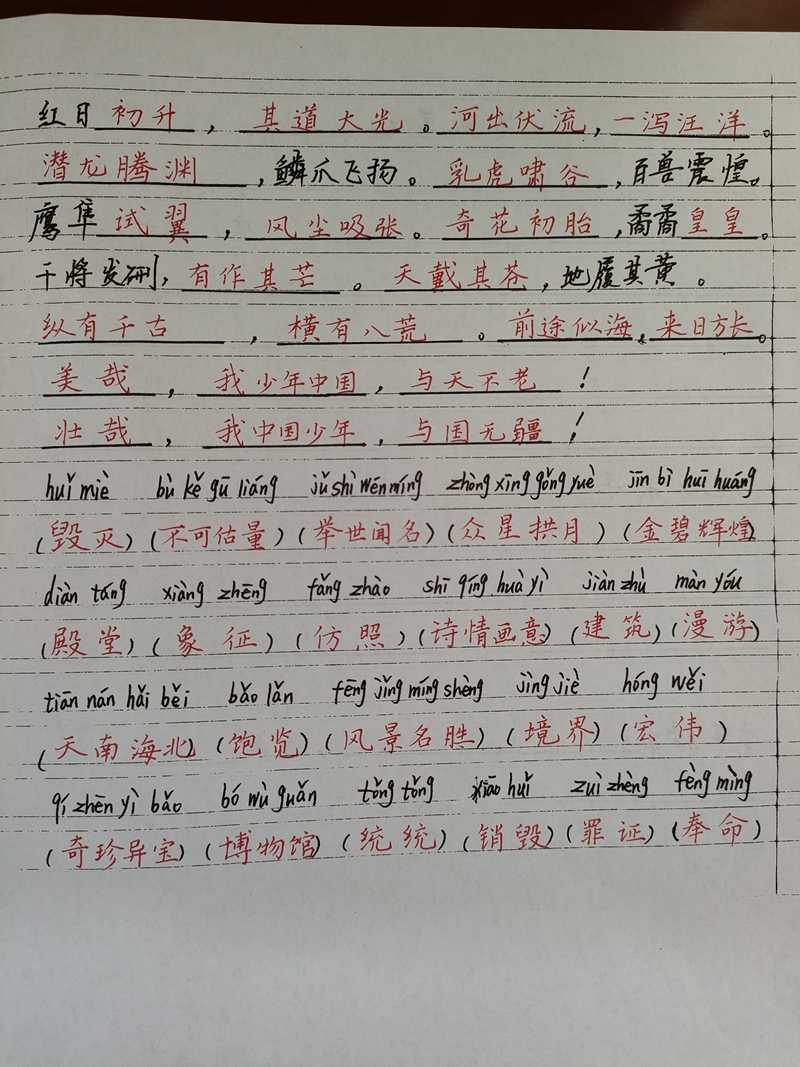 红日初升，其道大光。河出伏流，一泻汪洋。
潜龙腾渊，鳞爪飞扬。乳虎啸谷，百兽震煌。
鹰隼试翼，风尘吸张。奇花初胎，矞矞皇皇。
干将发硎，有作其芒。天戴其苍，地履其黄。
纵有千古，横有八荒。前途似海，来日方长。
美哉，我少年中国，与天不老！
壮哉，我中国少年，与国无疆！
huǐ miè bù kě gū liáng jǔ shì wén míng zhòng xīng gǒng yuè jīn bì huī huáng
(毁灭) (不可估量) (举世闻名) (众星拱月) (金碧辉煌)
diàn táng xiàng zhēng fǎng zhào shī qíng huà yì jiàn zhù màn yóu
(殿堂) (象征) (仿照) (诗情画意) (建筑) (漫游)
tiān nán hǎi běi bǎo lǎn fēng jǐng míng shèng jìng jiè hóng wěi
(天南海北) (饱览) (风景名胜) (境界) (宏伟)
qí zhēn yì bǎo bó wù guǎn tǒng tǒng xiāo huǐ zuì zhèng fèng mìng
(奇珍异宝) (博物馆) (统统) (销毁) (罪证) (奉命)